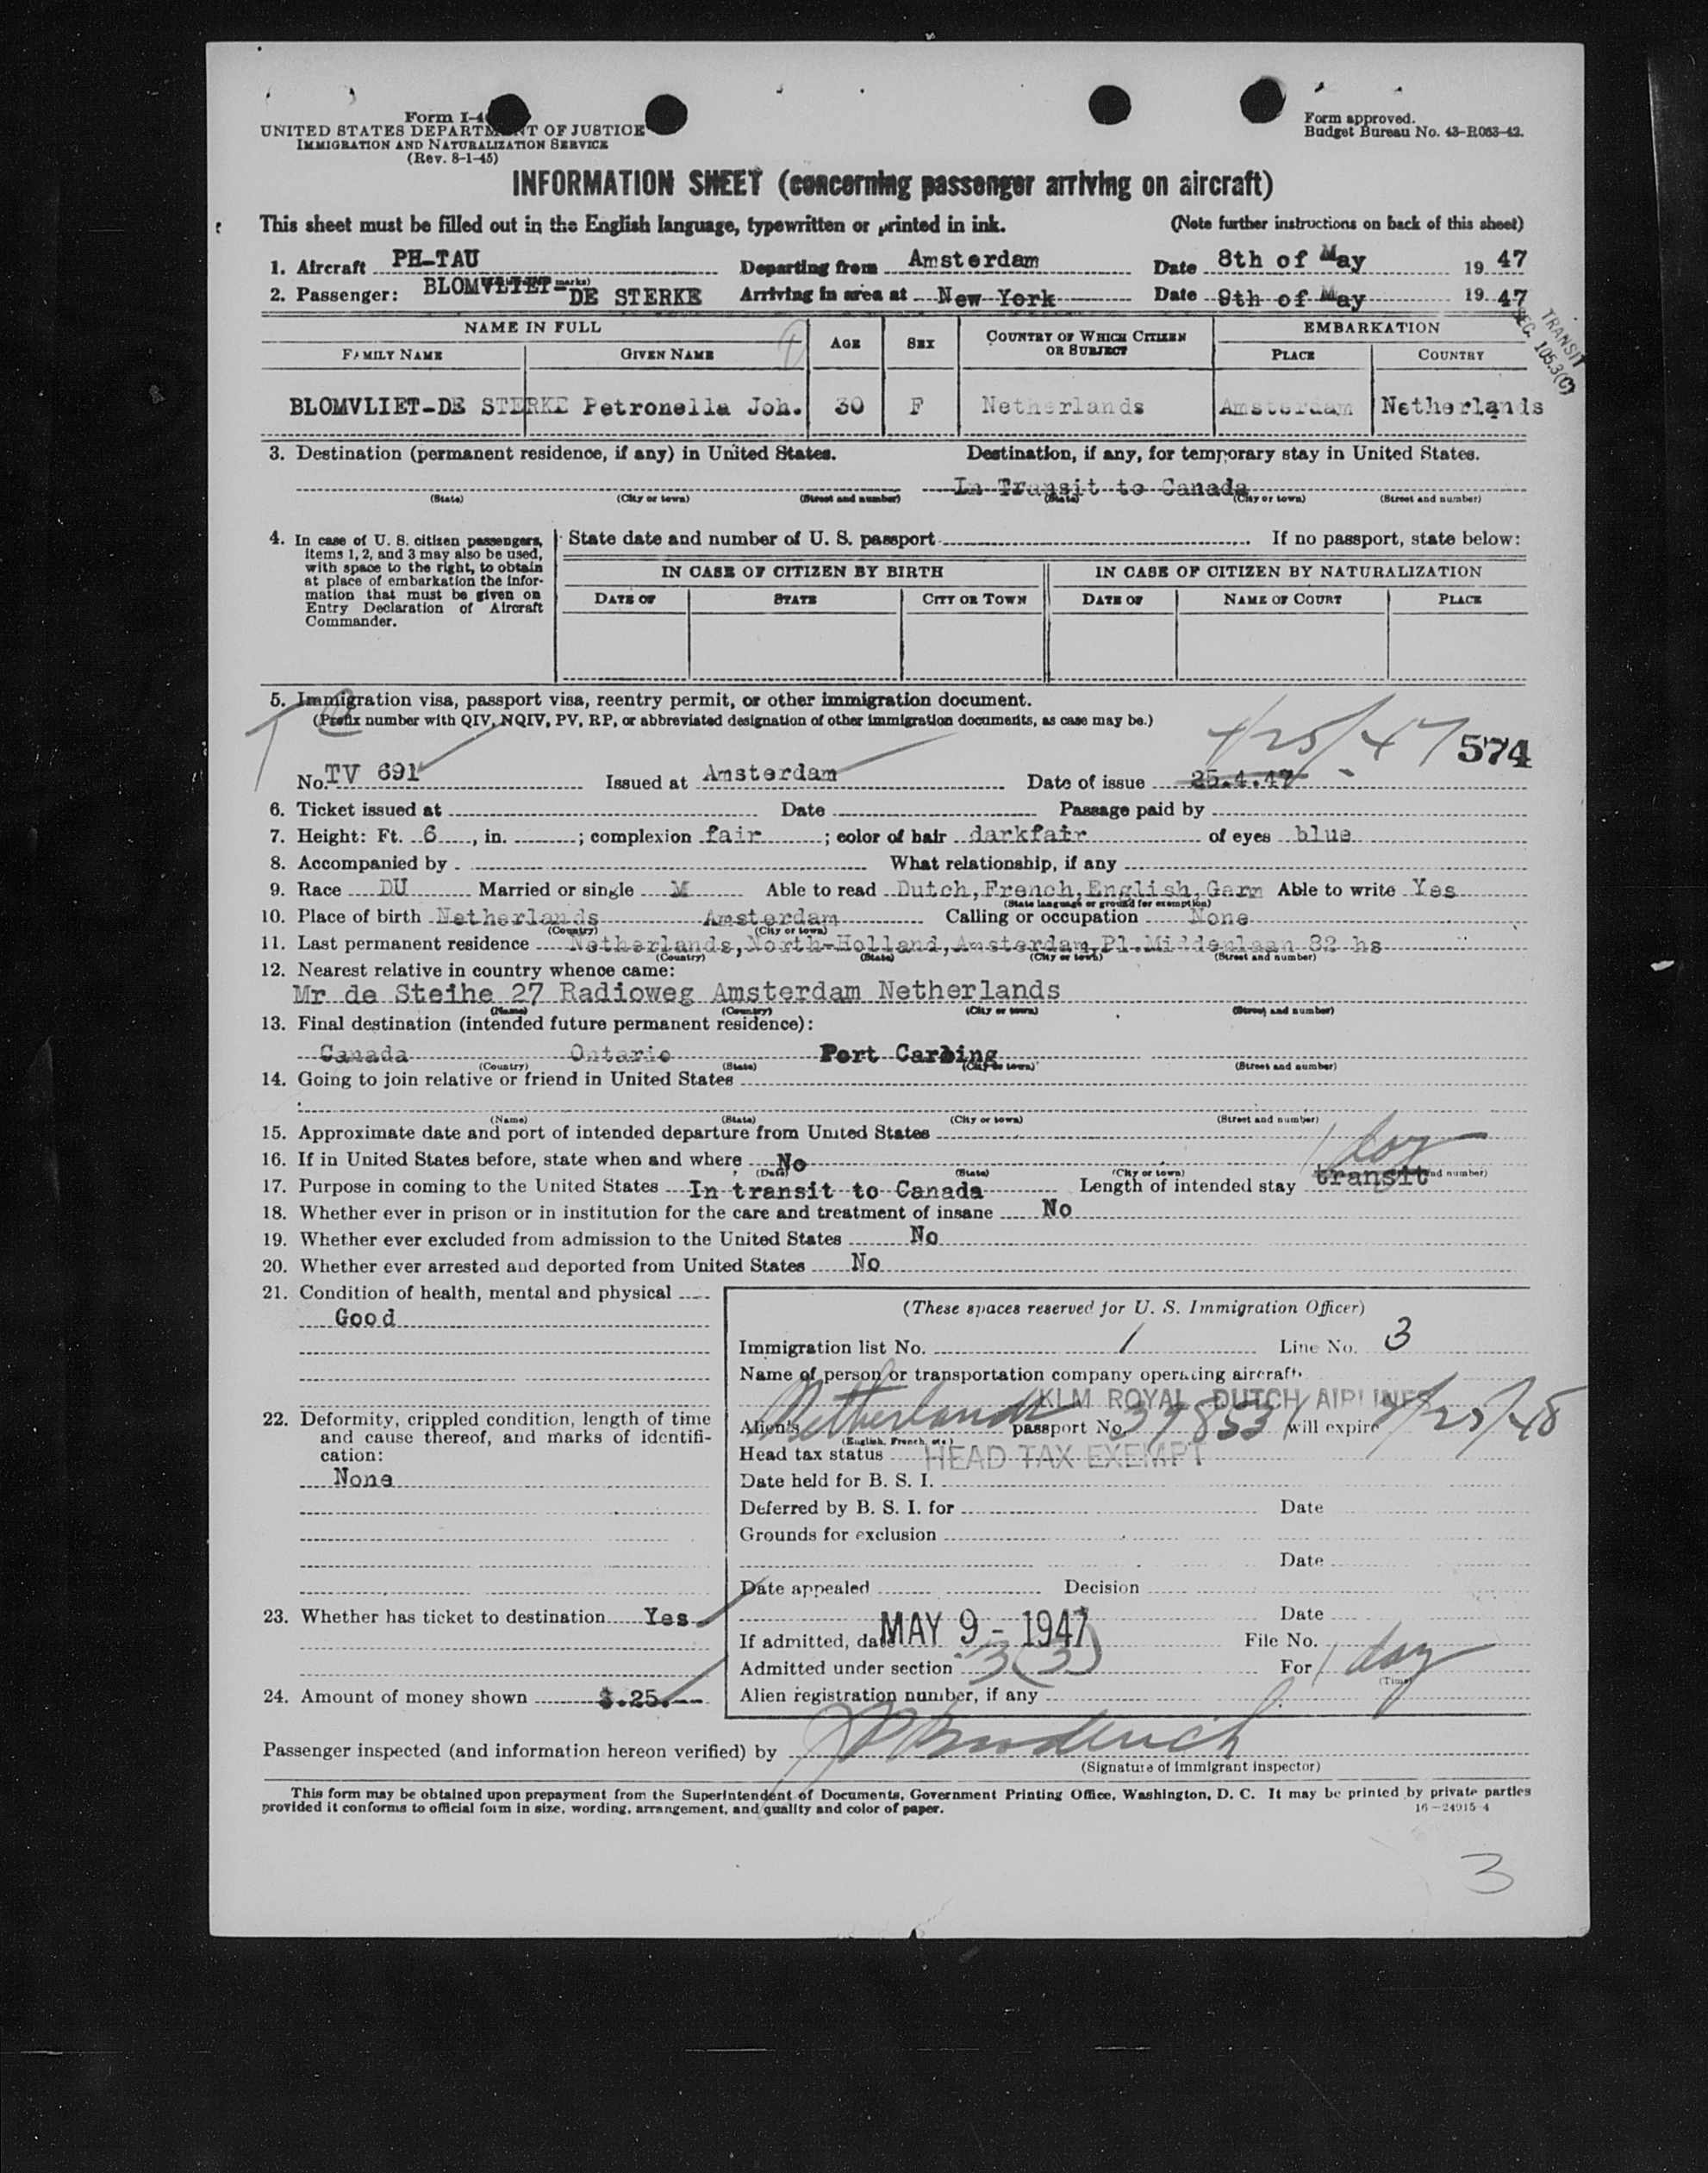 Form I-4
UNITED STATES DEPARTMENT OF JUSTICE
IMMIGRATION AND NATURALIZATION SERVICE
(Rev. 8-1-45)
Form approved.
Budget Bureau No. 43-R063-42.
INFORMATION SHEET (concerning passenger arriving on aircraft)
This sheet must be filled out in the English language, typewritten or printed in ink. (Note further instructions on back of this sheet)
1. Aircraft PH-TAU Departing from Amsterdam Date 8th of May 19 47
2. Passenger: BLOMVLIET-DE STERKE Arriving in area at New York Date 9th of May 19 47
TRANSIT
SEC. 105.3(C)
NAME IN FULL AGE SEX COUNTRY OF WHICH CITIZEN OR SUBJECT EMBARKATION
FAMILY NAME GIVEN NAME PLACE COUNTRY
BLOMVLIET-DE STERKE Petronella Joh. 30 F Netherlands Amsterdam Netherlands
3. Destination (permanent residence, if any) in United States. Destination, if any, for temporary stay in United States.
In Transit to Canada
(State) (City or town) (Street and number) (State) (City or town) (Street and number)
4. In case of U. S. citizen passengers, items 1, 2, and 3 may also be used, with space to the right, to obtain at place of embarkation the information that must be given on Entry Declaration of Aircraft Commander.
State date and number of U. S. passport If no passport, state below:
IN CASE OF CITIZEN BY BIRTH IN CASE OF CITIZEN BY NATURALIZATION
DATE OF STATE CITY OR TOWN DATE OF NAME OF COURT PLACE
5. Immigration visa, passport visa, reentry permit, or other immigration document.
(Prefix number with QIV, NQIV, PV, RP, or abbreviated designation of other immigration documents, as case may be.)
4/25/47 574
No. TV 691 Issued at Amsterdam Date of issue 25.4.47
6. Ticket issued at Date Passage paid by
7. Height: Ft. 6, in. ; complexion fair ; color of hair darkfair of eyes blue
8. Accompanied by What relationship, if any
9. Race DU Married or single M Able to read Dutch, French, English, Germ Able to write Yes
(State language or ground for exemption)
10. Place of birth Netherlands Amsterdam Calling or occupation None
(Country) (City or town)
11. Last permanent residence Netherlands, North-Holland, Amsterdam, Pl. Middenlaan 82 hs
(Country) (State) (City or town) (Street and number)
12. Nearest relative in country whence came:
Mr de Steihe 27 Radioweg Amsterdam Netherlands
(Name) (Country) (City or town) (Street and number)
13. Final destination (intended future permanent residence):
Canada Ontario Port Carling
(Country) (State) (City or town) (Street and number)
14. Going to join relative or friend in United States
(Name) (State) (City or town) (Street and number)
15. Approximate date and port of intended departure from United States
16. If in United States before, state when and where No
(Date) (State) (City or town) (Street and number)
1 day
17. Purpose in coming to the United States In transit to Canada Length of intended stay transit
18. Whether ever in prison or in institution for the care and treatment of insane No
19. Whether ever excluded from admission to the United States No
20. Whether ever arrested and deported from United States No
21. Condition of health, mental and physical
Good
22. Deformity, crippled condition, length of time and cause thereof, and marks of identification:
None
23. Whether has ticket to destination Yes
24. Amount of money shown $.25.--
(These spaces reserved for U. S. Immigration Officer)
Immigration list No. 1 Line No. 3
Name of person or transportation company operating aircraft
KLM ROYAL DUTCH AIRLINES
Alien's Netherlands passport No. 37853 will expire
(English, French, etc.)
Head tax status HEAD TAX EXEMPT
Date held for B. S. I.
Deferred by B. S. I. for Date
Grounds for exclusion
Date
Date appealed Decision
Date
If admitted, date MAY 9 - 1947 File No.
Admitted under section 3(3) For 1 day
(Time)
Alien registration number, if any
Passenger inspected (and information hereon verified) by
(Signature of immigrant inspector)
This form may be obtained upon prepayment from the Superintendent of Documents, Government Printing Office, Washington, D. C. It may be printed by private parties
provided it conforms to official form in size, wording, arrangement, and quality and color of paper. 16—24915-4
3